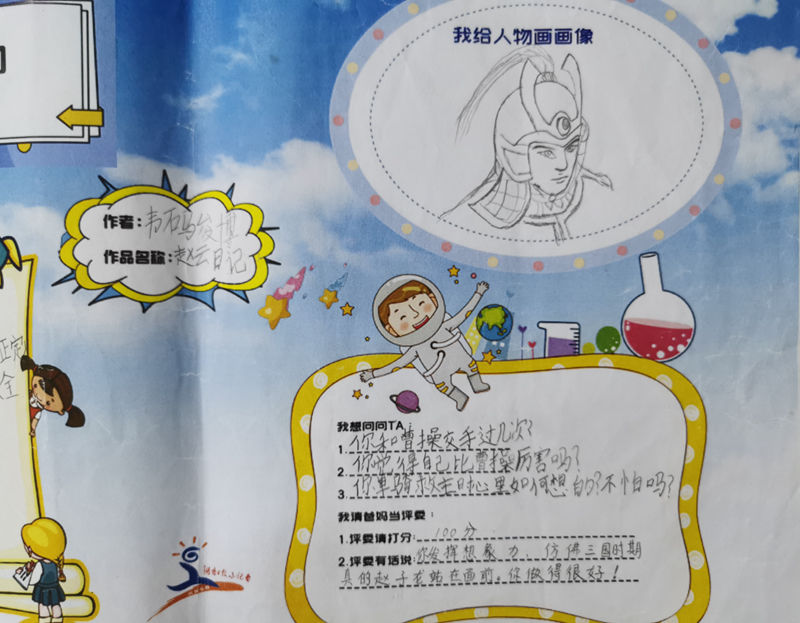 我给人物画画像
作者:韦石马俊博
作品名称:赵云日记
定
全
我想问问TA
1.你和曹操交手过几次?
2.你觉得自己比曹操厉害吗?
3.你单骑救主时心里如何想的?不怕吗?
我请爸妈当评委:
1.评委请打分:100分
2.评委有话说:你发挥想象力,仿佛三国时期
真的赵子龙站在面前。你做得很好!